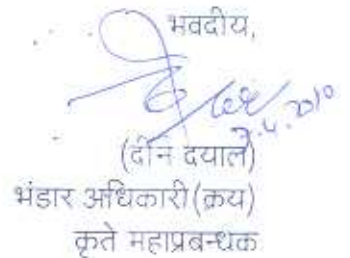 भवदीय,
7.4.2010
(दीन दयाल)
भंडार अधिकारी(क्रय)
कृते महाप्रबन्धक